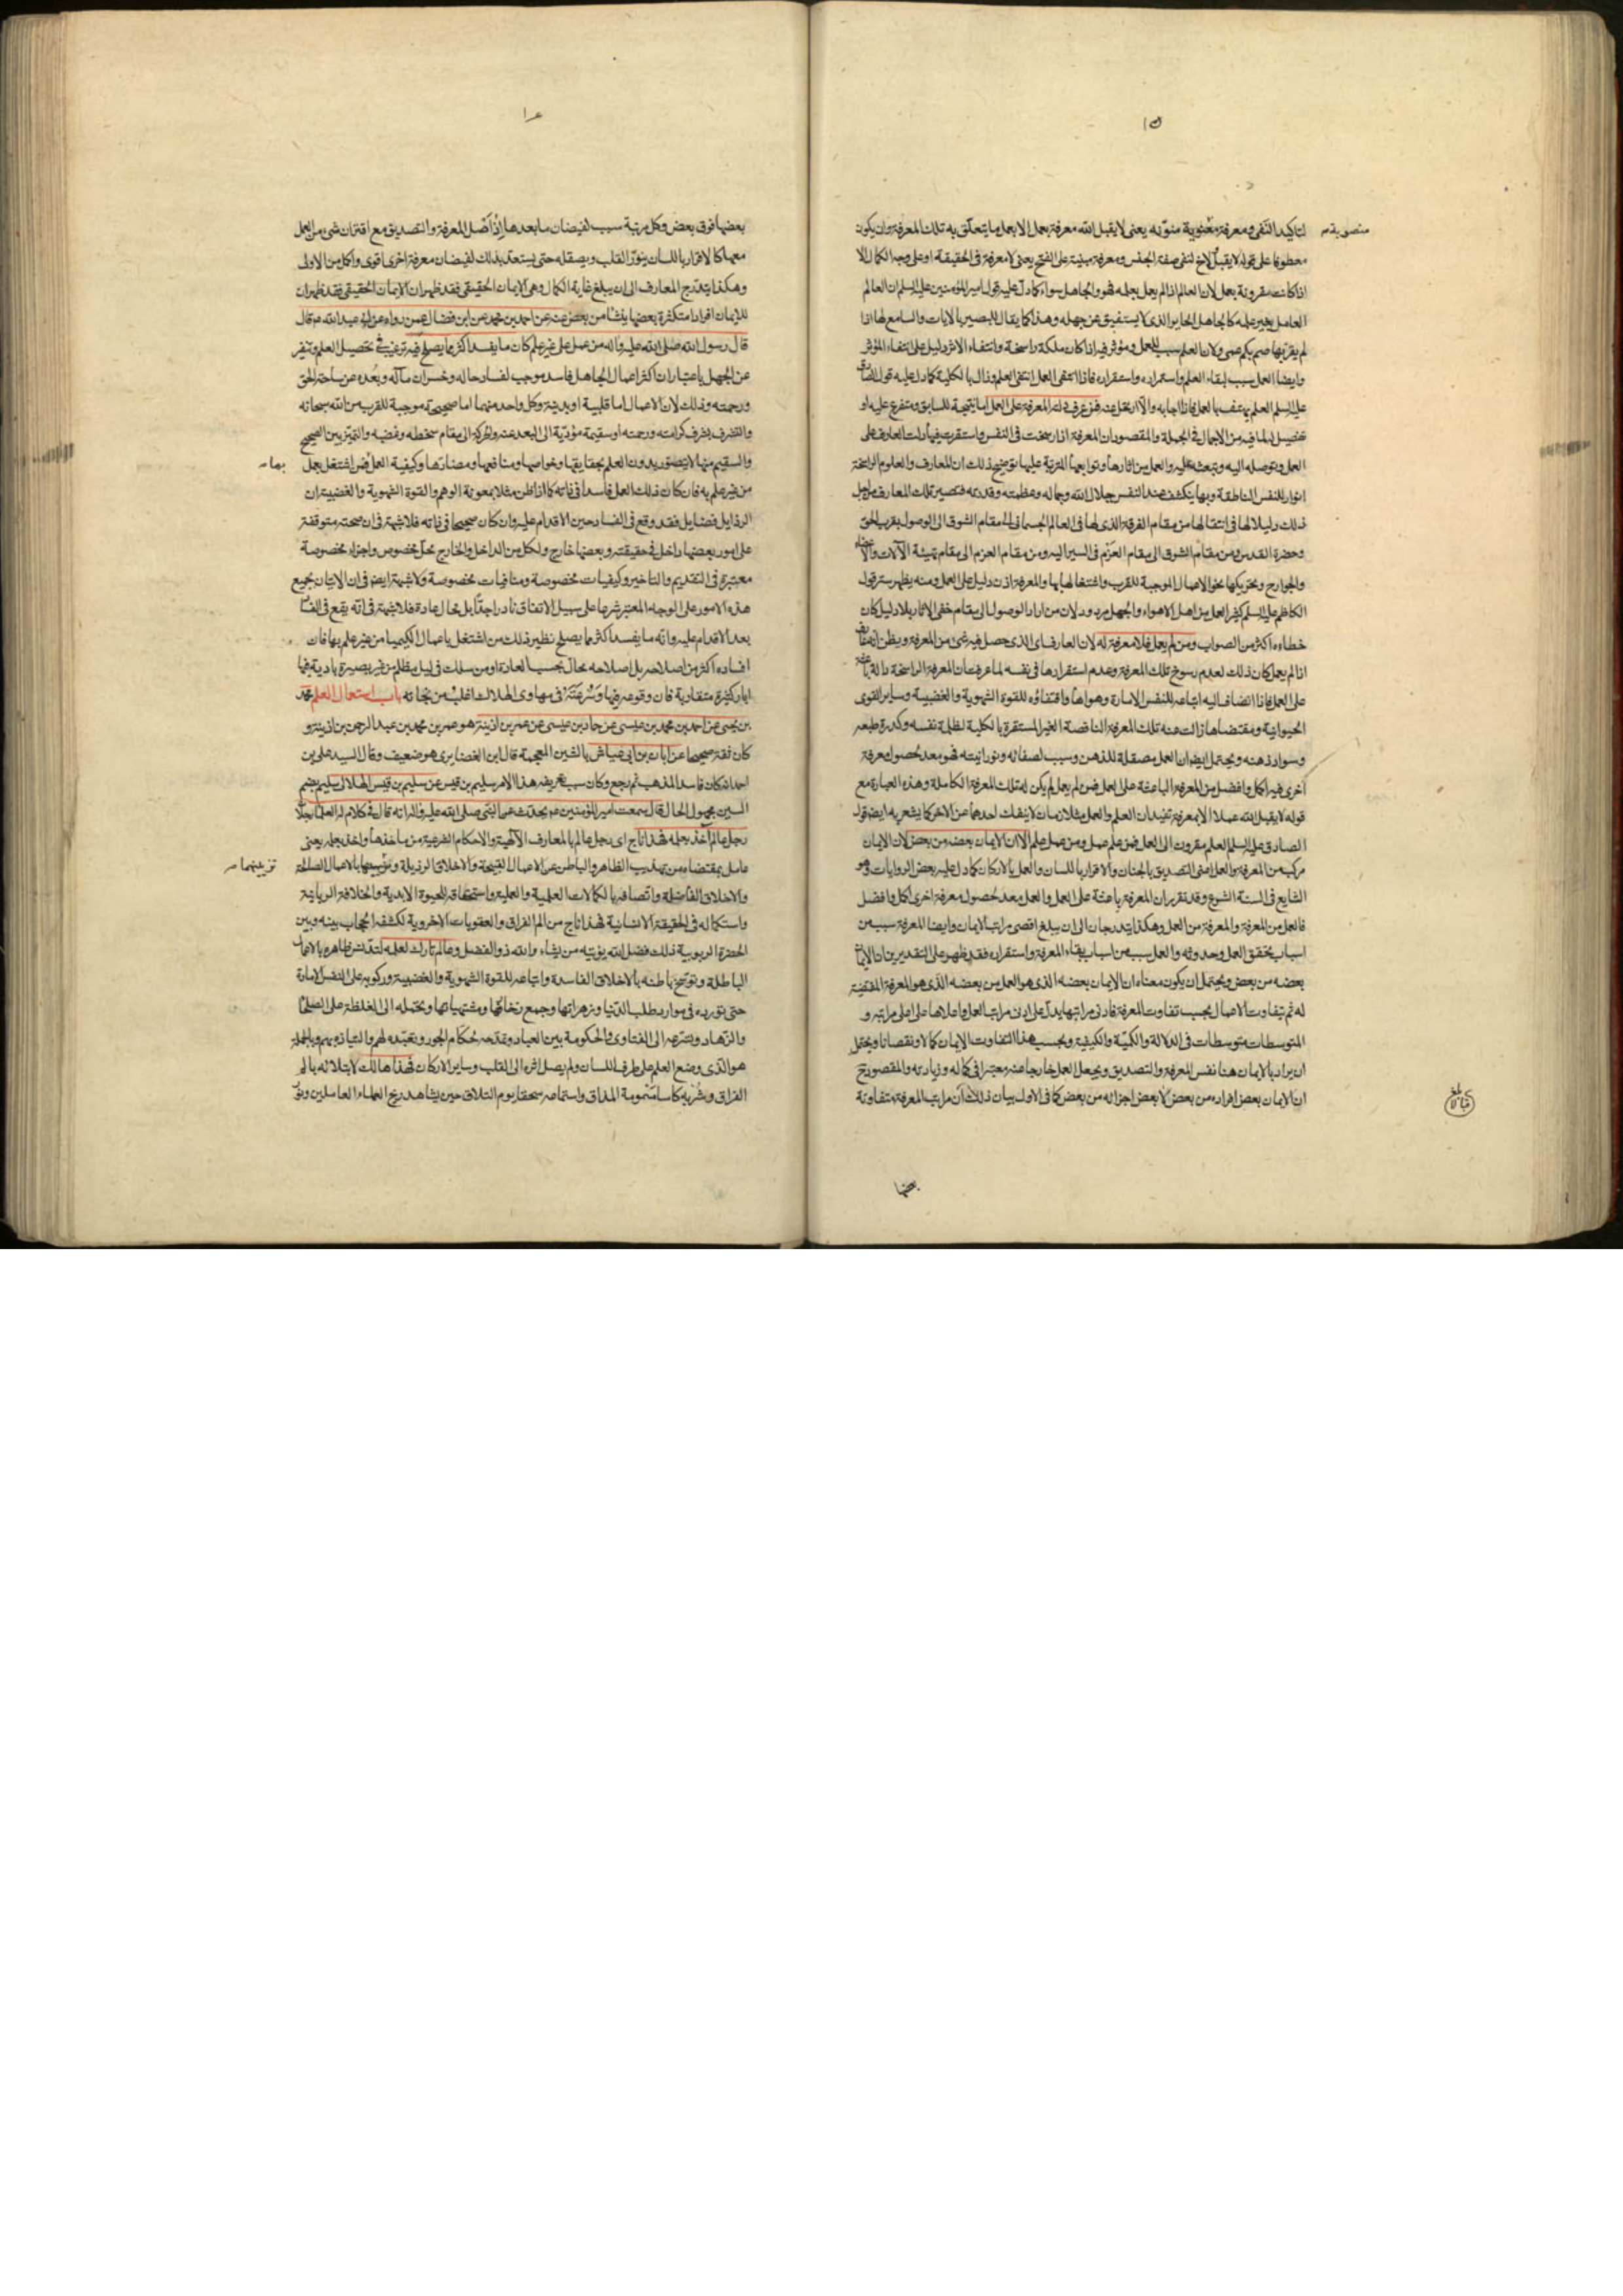 لتاكيد النفى ومعرفة منصوبة منونة يعنى لا يقبل الله معرفة بعمل الا بعمل ما يتعلق به تلك المعرفة وان يكون
معطوفا على قوله لا يقبل ولا لنفى صفة الجنس ومعرفة مبنية على الفتح يعنى لا معرفة فى الحقيقة او على وجه الكمال الا
اذا كانت مقرونة بعمل لان العالم اذا لم يعمل بعلمه فهو والجاهل سواء كما دل عليه قول امير المؤمنين عليه السلم ان العالم
العامل بغير علمه كالجاهل الحاير الذى لا يستفيق عن جهله وهذا كما يقال للبصير بالايات والسامع لها اذا
لم يقر بها صم بكم عمى ولان العلم سبب للعمل ومؤثر فيه اذا كان ملكة راسخة وانتفاء الاثر دليل على انتفاء المؤثر
وايضا العمل سبب لبقاء العلم واستمراره واستقراره فاذا انتفى العمل انتفى العلم وزال بالكلية كما دل عليه قول الصادق
عليه السلم العلم يهتف بالعمل فاذا اجابه والا ارتحل عنه فمن عرف دلته المعرفة على العمل اما نتيجة للسابق ومتفرع عليه او
تفصيل لما فيه من الاجمال فى الجملة والمقصود ان المعرفة اذا رسخت فى النفس واستقرت فيها دلت العارف على
العمل وتوصله اليه وتبعثه عليه والعمل من اثارها وتوابعها المترتبة عليها توضيح ذلك ان المعارف والعلوم الراسخة
انوار للنفس الناطقة وبها ينكشف عند النفس جلال الله وجماله وعظمته وقدرته فتصير تلك المعارف من اجل
ذلك دليلا لها فى انتقالها من مقام الفرقة الذى لها فى العالم الجسمانى الى مقام الشوق الى الوصول بقرب الحق
وحضرة القدس ومن مقام الشوق الى مقام العزم فى السير اليه ومن مقام العزم الى مقام تهيئة الآلات والاعضاء
والجوارح وتحريكها نحو الاعمال الموجبة للقرب واشتغالها بها والمعرفة اذن دليل على العمل ومنه يظهر سر قول
الكاظم عليه السلم كثير العمل من اهل الاهواء والجهل مردود لان من اراد الوصول الى مقام خفى الاثار بلا دليل كان
خطاءه اكثر من الصواب ومن لم يعمل فلا معرفة له لان العارف اى الذى حصل فيه شىء من المعرفة ويظن انه عارف
اذا لم يعمل كان ذلك لعدم رسوخ تلك المعرفة وعدم استقرارها فى نفسه لما عرفت ان المعرفة الراسخة دالة باعثة
على العمل فاذا انضاف اليه اتباعه للنفس الامارة وهواها واقتفاءه للقوة الشهوية والغضبية وساير القوى
الحيوانية ومقتضاها زالت عنه تلك المعرفة الناقصة الغير المستقرة بالكلية لظلمة نفسه وكدرة طبعه
وسواد ذهنه ويحتمل ايضا ان العمل مصقلة للذهن وسبب لصفائه ونورانيته فهو معد لحصول معرفة
اخرى فيه اكمل وافضل من المعرفة الباعثة على العمل فمن لم يعمل لم يكن له تلك المعرفة الكاملة وهذه العبارة مع
قوله لا يقبل الله عملا الا بمعرفة تفيد ان العلم والعمل متلازمان لا ينفك احدهما عن الاخر كما يشعر به ايضا قول
الصادق عليه السلم العلم مقرون الى العمل فمن علم عمل ومن عمل علم الا ان الايمان بعضه من بعض لان الايمان
مركب من المعرفة والعمل اعنى التصديق بالجنان والاقرار باللسان والعمل بالاركان كما دل عليه بعض الروايات وهو
الشايع فى السنة الشرع وقد تقرر ان المعرفة باعثة على العمل والعمل معد لحصول معرفة اخرى اكمل وافضل
فالعمل من المعرفة والمعرفة من العمل وهكذا يتدرجان الى ان يبلغ اقصى مراتب الايمان وايضا المعرفة سبب من
اسباب تحقق العمل وحدوثه والعمل سبب من اسباب بقاء المعرفة واستقراره فقد ظهر على التقديرين ان الايمان
بعضه من بعض ويحتمل ان يكون معناه ان الايمان بعضه الذى هو العمل من بعضه الذى هو المعرفة المقتضية
له ثم تفاوت الاعمال بحسب تفاوت المعرفة فادنى مراتبها يدل على ادنى مراتب العمل واعلاها على اعلى مراتبه و
المتوسطات متوسطات فى الدلالة والكمية والكيفية وبحسب هذا التفاوت الايمان كمالا ونقصانا ويحتمل
ان يراد بالايمان هنا نفس المعرفة والتصديق ويجعل العمل خارجا عنه معتبرا فى كماله وزيادته والمقصود ح
ان الايمان بعض افراده من بعض لا بعض اجزائه من بعض كما فى الاول بيان ذلك ان مراتب المعرفة متفاوتة
بعضها
منصوبة م
بلغ قبالا
بعضها فوق بعض وكل مرتبة سبب لفيضان ما بعدها اذ اصل المعرفة والتصديق مع اقتران شىء من العمل
معها كالاقرار باللسان ينور القلب ويصقله حتى يستعد بذلك لفيضان معرفة اخرى اقوى واكمل من الاولى
وهكذا يتدرج المعارف الى ان يبلغ غاية الكمال وهى الايمان الحقيقى فقد ظهر ان الايمان الحقيقى فقد ظهر ان
للايمان افرادا متكثرة بعضها ينشأ من بعض عنه عن احمد بن محمد عن ابن فضال عمن رواه عن ابى عبد الله ع م قال
قال رسول الله صلى الله عليه واله من عمل على غير علم كان ما يفسد اكثر مما يصلح فيه ترغيب فى تحصيل العلم وتنفير
عن الجهل باعتبار ان اكثر اعمال الجاهل فاسد موجب لفساد حاله وخسران مآله وبعده عن ساحة الحق
ورحمته وذلك لان الاعمال اما قلبية او بدنية وكل واحد منهما اما صحيحة موجبة للقرب من الله سبحانه
والتشرف بشرف كرامته ورحمته او سقيمة مؤدية الى البعد عنه والحركة الى مقام سخطه وغضبه والتميز بين الصحيح
والسقيم منها لا يتصور بدون العلم بحقايقها وخواصها ومنافعها ومضارها وكيفية العمل فمن اشتغل بعمل
من غير علم به فان كان ذلك العمل فاسدا فى ذاته كما اذا ظن مثلا بمعونة الوهم والقوة الشهوية والغضبية ان
الرذايل فضايل فقد وقع فى الفساد حين الاقدام عليه وان كان صحيحا فى ذاته فلا شبهة فى ان صحته متوقفة
على امور بعضها داخل فى حقيقته وبعضها خارج ولكل من الداخل والخارج محل مخصوص واجزاء مخصوصة
معتبرة فى التقديم والتاخير وكيفيات مخصوصة ومنافيات مخصوصة ولا شبهة ايضا فى ان الاتيان بجميع
هذه الامور على الوجه المعتبر شرعا على سبيل الاتفاق نادر جدا بل محال عادة فلا شبهة فى انه يقع فى الفساد
بعد الاقدام عليه وانه ما يفسد اكثر مما يصلح نظير ذلك من اشتغل باعمال الكيميا من غير علم بها فان
افساده اكثر من اصلاحه بل اصلاحه محال بحسب العادة او من سلك فى ليل مظلم من غير بصيرة بادية فيها
ابار كثيرة متقاربة فان وقوعه فيها وسرعته فى مهاوى الهلاك اغلب من نجاته باب استعمال العلم محمد
بن يحيى عن احمد بن محمد بن عيسى عن حماد بن عيسى عن عمر بن اذينة هو عمر بن محمد بن عبد الرحمن بن اذينة و
كان ثقة صحيحا عن ابان بن ابى عياش بالشين المعجمة قال ابن الغضايرى هو ضعيف وقال السيد على بن
احمد انه كان فاسد المذهب ثم رجع وكان سبب تعريفه هذا الامر سليم بن قيس عن سليم بن قيس الهلالى سليم بضم
السين مجهول الحال قال سمعت امير المؤمنين ع م يحدث عن النبى صلى الله عليه واله انه قال فى كلام له العلماء رجلان
رجل عالم آخذ بعلمه فهذا ناج اى رجل عالم بالمعارف الالهية والاحكام الشرعية من ماخذها واخذ بعلمه يعنى
عامل بمقتضاه من تهذيب الظاهر والباطن عن الاعمال القبيحة والاخلاق الرذيلة وتزيينهما بالاعمال الصالحة
والاخلاق الفاضلة واتصافه بالكمالات العلمية والعملية واستحقاقه للحيوة الابدية والخلافة الربانية
واستكماله فى الحقيقة الانسانية فهذا ناج من الم الفراق والعقوبات الاخروية لكشفه الحجاب بينه وبين
الحضرة الربوبية ذلك فضل الله يؤتيه من يشاء والله ذو الفضل وعالم تارك لعلمه لتدنس ظاهره بالاعمال
الباطلة وتوسخ باطنه بالاخلاق الفاسدة واتباعه للقوة الشهوية والغضبية وركوبه على النفس الامارة
حتى تورده فى موارد طلب الدنيا وزهراتها وجمع زخارفها ومشتهياتها وتحمله الى الغلظة على الصلحاء
والزهاد وتسرعه الى الفتاوى والحكومة بين العباد وتقدمه حكام الجور وتعبده لهم والتياذه بهم وبالجملة
هو الذى وضع العلم على طرف اللسان ولم يصل اثره الى القلب وساير الاركان فهذا هالك لابتلائه بالم
الفراق وشربه كاسا مسمومة المذاق واستماعه سحقا يوم التلاق حين يشاهد ربح العلماء العاملين
بها م
تزيينهما م